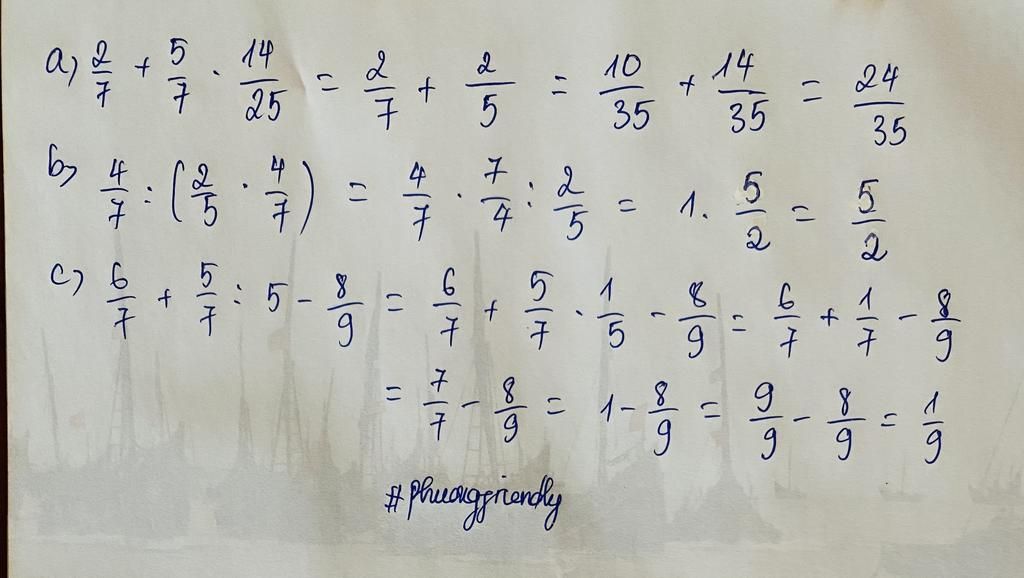 a) 2/7 + 5/7 . 14/25 = 2/7 + 2/5 = 10/35 + 14/35 = 24/35
b) 4/7 : (2/5 . 4/7) = 4/7 . 7/4 : 2/5 = 1 . 5/2 = 5/2
c) 6/7 + 5/7 : 5 - 8/9 = 6/7 + 5/7 . 1/5 - 8/9 = 6/7 + 1/7 - 8/9
= 7/7 - 8/9 = 1 - 8/9 = 9/9 - 8/9 = 1/9
#phuongfriendly